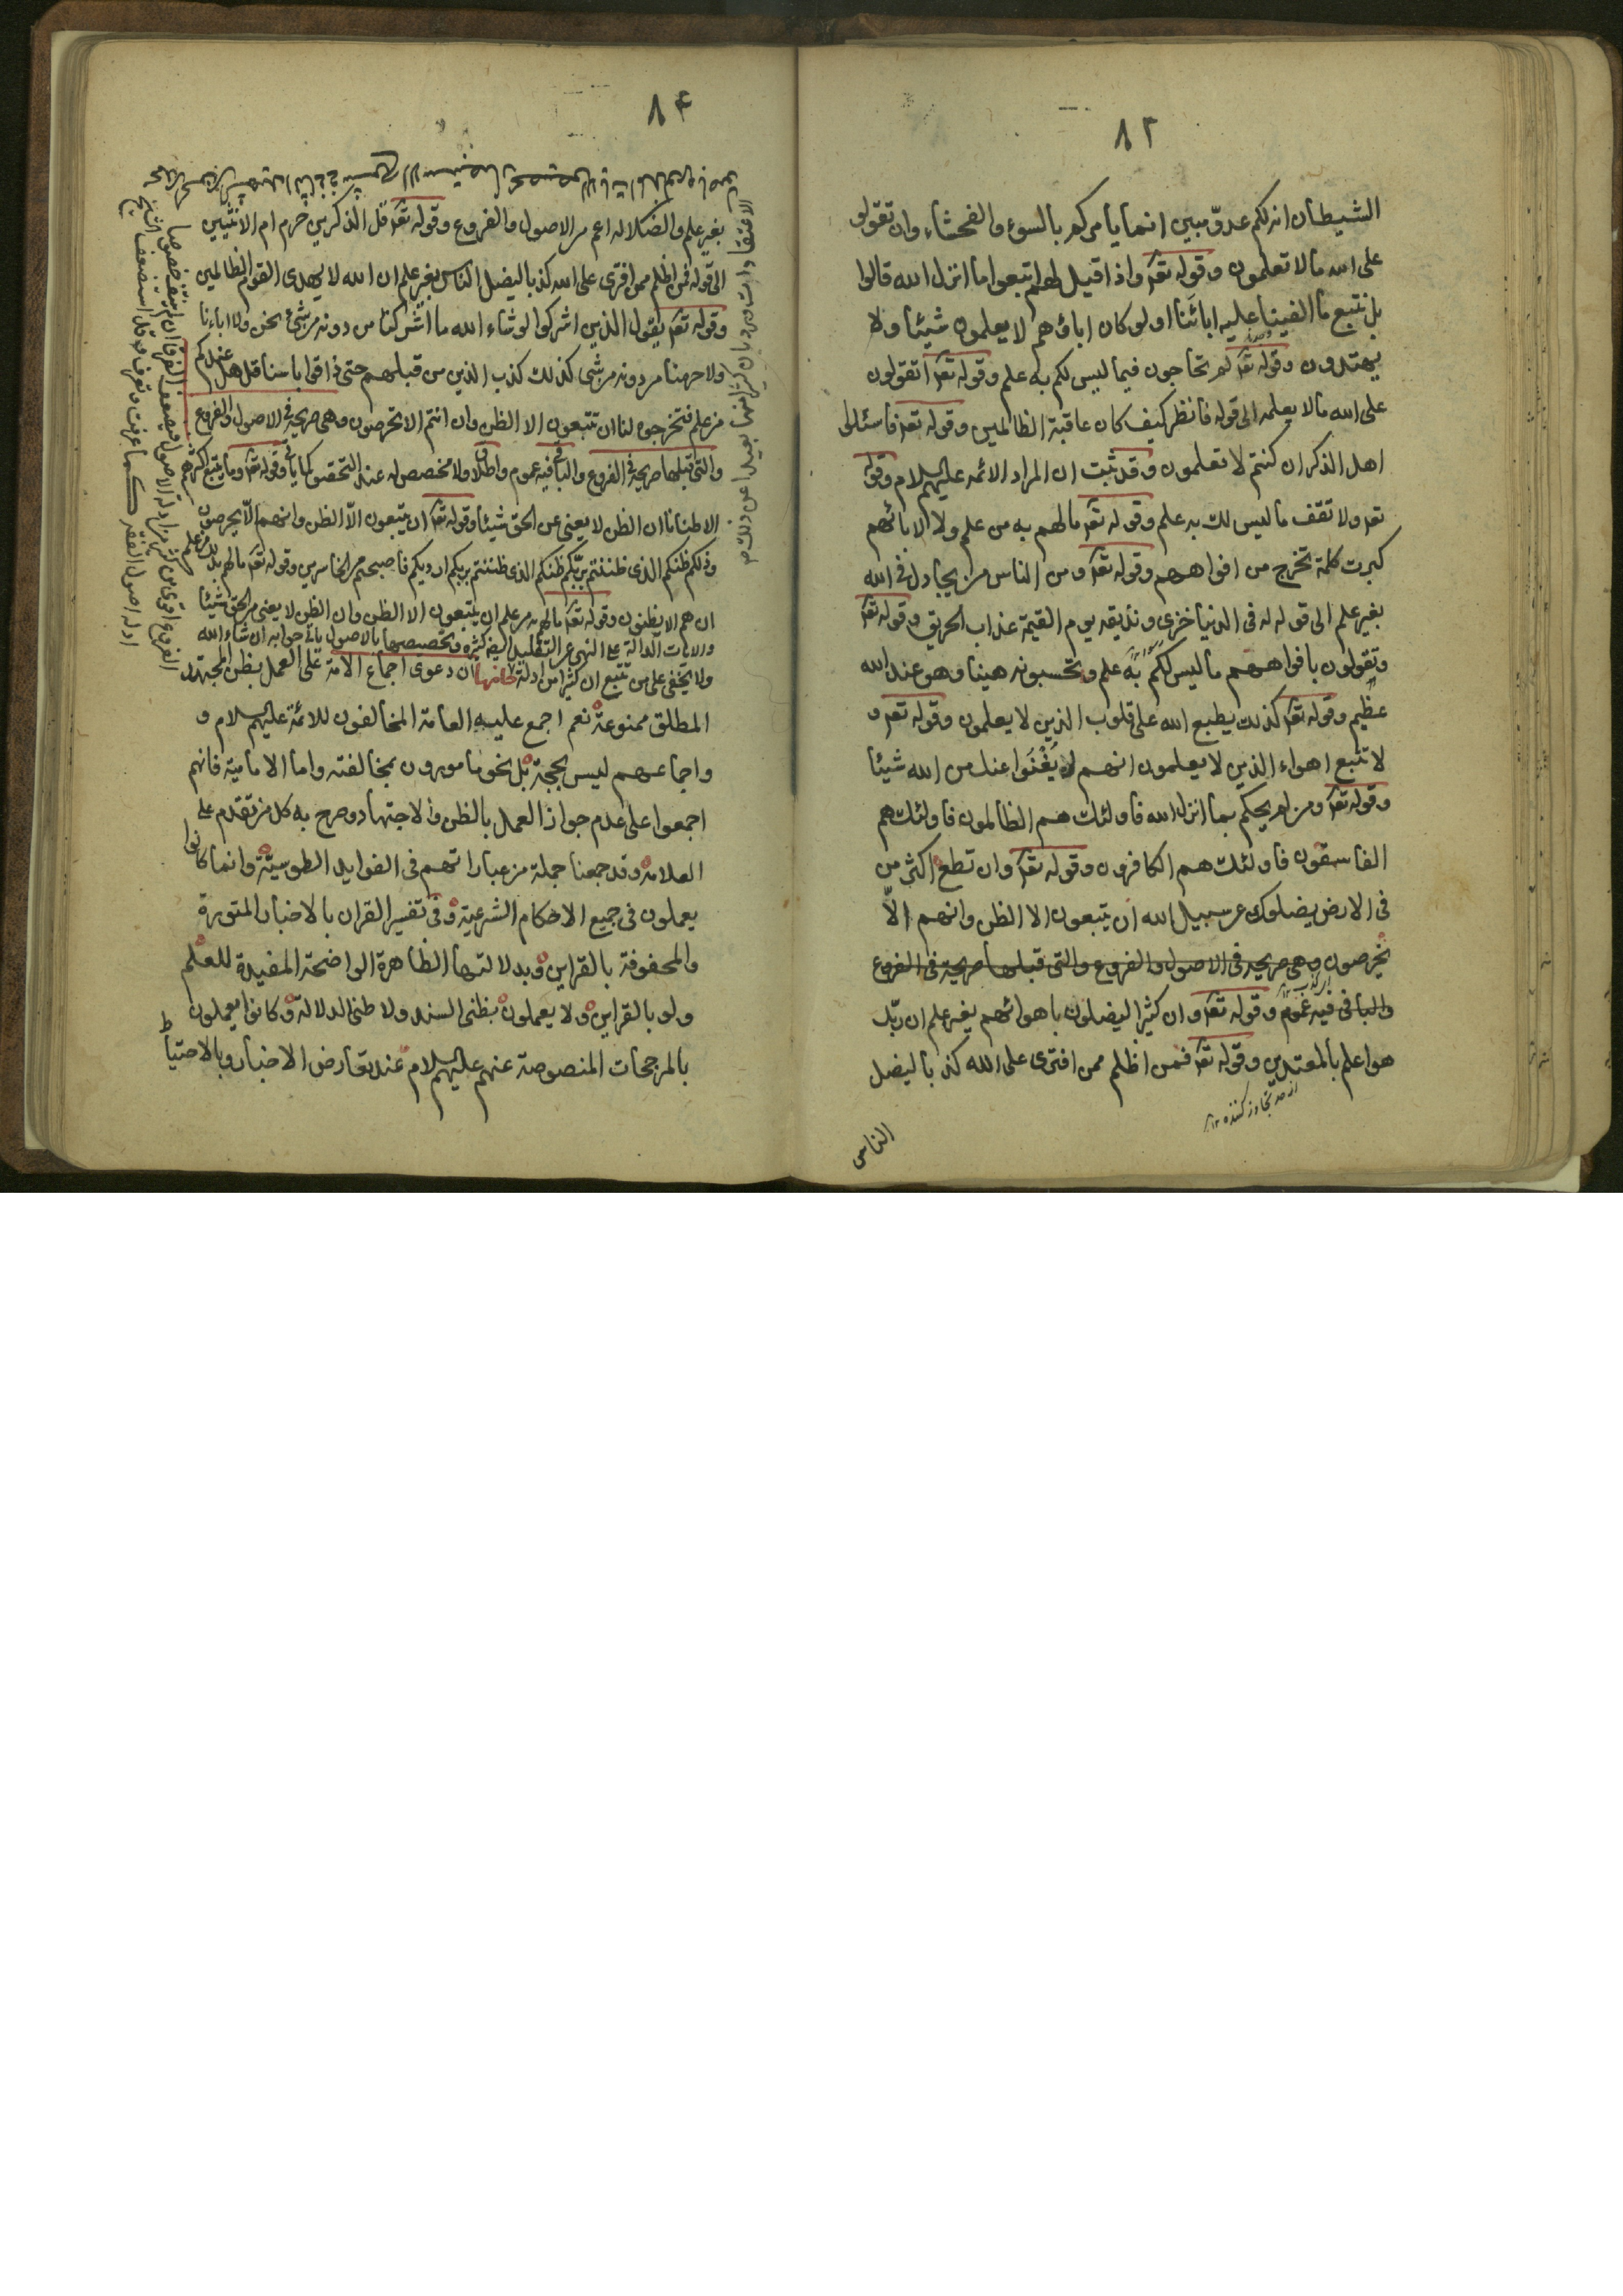 ٨٢
الشيطان انه لكم عدوّ مبين انما يامركم بالسوء والفحشاء وان تقولو
على الله مالا تعلمون وقوله تعد واذا قيل لهم اتبعوا ما انزل الله قالوا
بل نتبع ما الفينا عليه اباءنا اولو كان اباؤهم لا يعلمون شيئا ولا
يهتدون وقوله تعد لم تحاجون فيما ليس لكم به علم وقوله تعد اتقولون
على الله مالا يعلمه الى قوله فانظر كيف كان عاقبة الظالمين وقوله تعد فاسئلوا
اهل الذكر ان كنتم لا تعلمون وقد ثبت ان المراد الائمه عليهم السلام وقوله
تعد ولا تقف ما ليس لك به علم وقوله تعد مالهم به من علم ولا لابائهم
كبرت كلمة تخرج من افواههم وقوله تعد ومن الناس من يجادل فى الله
بغير علم الى قوله له فى الدنيا خزى ونذيقه يوم القيمة عذاب الحريق وقوله تعد
وتقولون بافواههم ما ليس لكم به علم وتحسبونه هينا وهو عند الله
عظيم وقوله تعد كذلك يطبع الله على قلوب الذين لا يعلمون وقوله تعد و
لا تتبع اهواء الذين لا يعلمون انهم لن يغنوا عنك من الله شيئا
وقوله تعد ومن لم يحكم بما انزل الله فاولئك هم الظالمون فاولئك هم
الفاسقون فاولئك هم الكافرون وقوله تعد وان تطع اكثر من
فى الارض يضلوك عن سبيل الله ان يتبعون الا الظن وانهم الاّ
يخرصون وهى صريحه فى الاصول والفروع والتى قبلها صريحة فى الفروع
والباقى فيه عموم وقوله تعد وان كثيرا ليضلون باهوائهم بغير علم ان ربّك
هو اعلم بالمعتدين وقوله تعد فمن اظلم ممن افترى على الله كذبا ليضل
از حد تجاوز كننده ١٢
الناس
٨٤
بغير علم والضلاله اعم من الاصول والفروع وقوله تعد قل الذكرين حرم ام الانثيين
الى قوله فمن اظلم ممن افترى على الله كذبا ليضل الناس بغير علم ان الله لا يهدى القوم الظالمين
وقوله تعد يقول الذين اشركوا لو شاء الله ما اشركنا من دونه من شئ نحن ولا اباءنا
ولا حرمنا من دونه من شئ كذلك كذب الذين من قبلهم حتى ذاقوا باسنا قل هل عندكم
من علم فتخرجوه لنا ان تتبعون الا الظن وان انتم الا تخرصون وهى صريحة فى الاصول والفروع
والتى قبلها صريحة فى الفروع والباقى فيه عموم واطلاق ولا مخصص له عند التحقيق كما ياتى وقوله تعد وما يتبع اكثرهم
الا ظنا ان الظن لا يغنى عن الحق شيئا وقوله تعد ان يتبعون الاّ الظن وانهم الاّ يخرصون
وذلكم ظنكم الذى ظننتم بربّكم ظنكم الذى ظننتم بربكم ارديكم فاصبحتم من الخاسرين وقوله تعد مالهم بذلك من علم
ان هم الا يظنون وقوله تعد مالهم به من علم ان يتبعون الا الظن وان الظن لا يغنى من الحق شيئا
والايات الدالة على النهى عن التقليد ايضا كثيره وتخصيصها بالاصول ياتى جوابه ان شاء الله
ولا يخفى على من تتبع ان كثيرا من ادلة ان دعوى اجماع الامة على العمل بظن المجتهد
المطلق ممنوعة نعم اجمع عليه العامة المخالفون للائمة عليهم السلام و
واجماعهم ليس بحجة بل نحن مامورون بمخالفته واما الامامية فانهم
اجمعوا على عدم جواز العمل بالظن والاجتهاد وصرح به كل من تقدم على
العلامة وقد جمعنا جملة من عباراتهم فى الفوايد الطوسيّة وانما كانوا
يعملون فى جميع الاحكام الشرعية وفى تفسير القران بالاخبار المتوترة
والمحفوفة بالقراين وبدلالتها الظاهرة الواضحة المفيدة للعلم
ولو بالقراين ولا يعملون بظنى السند ولا ظنى الدلالة وكانوا يعملون
بالمرجحات المنصوصة عنهم عليهم السلام عند تعارض الاخبار وبالاحتياط